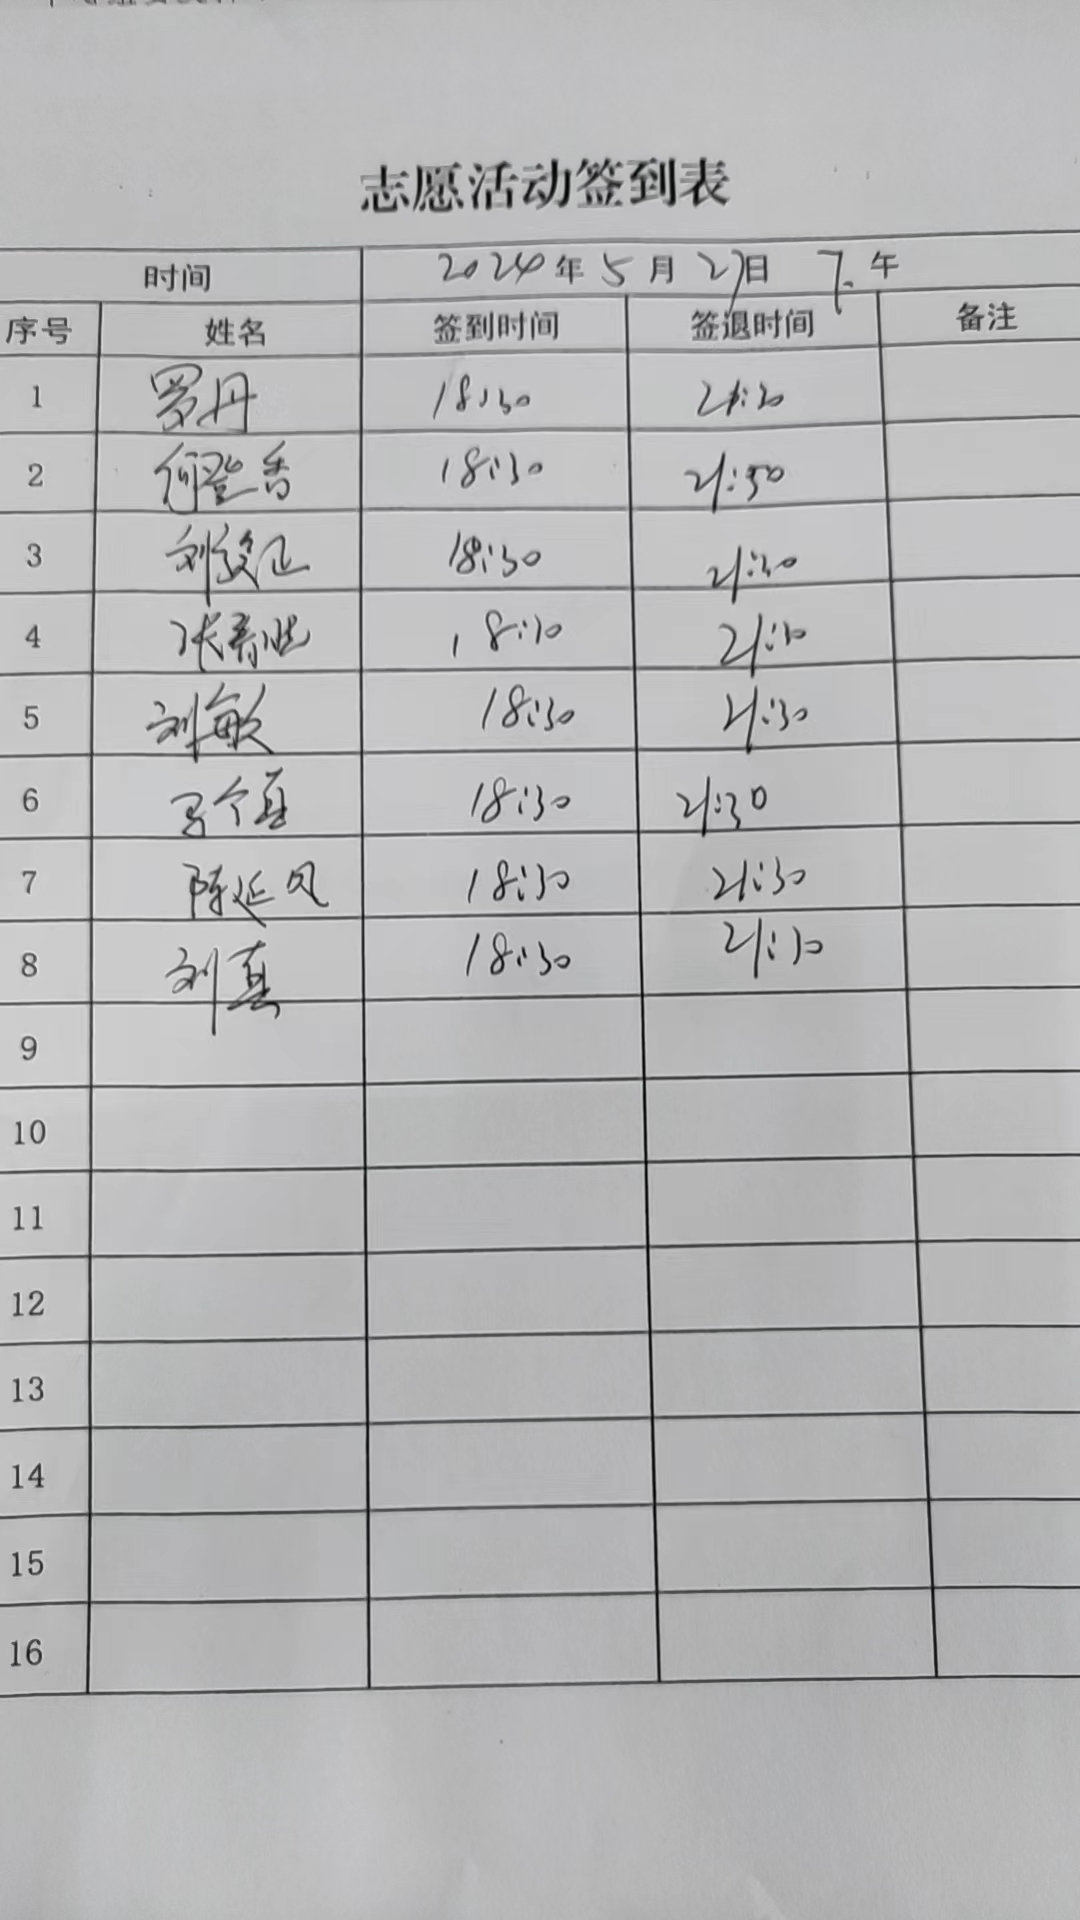 志愿活动签到表
时间 2024年5月27日 下午
序号 姓名 签到时间 签退时间 备注
1 罗丹 18:30 21:30
2 何登香 18:30 21:30
3 刘 正 18:30 21:30
4 张春 18:30 21:30
5 刘敏 18:30 21:30
6 18:30 21:30
7 陈延风 18:30 21:30
8 刘真 18:30 21:30
9
10
11
12
13
14
15
16